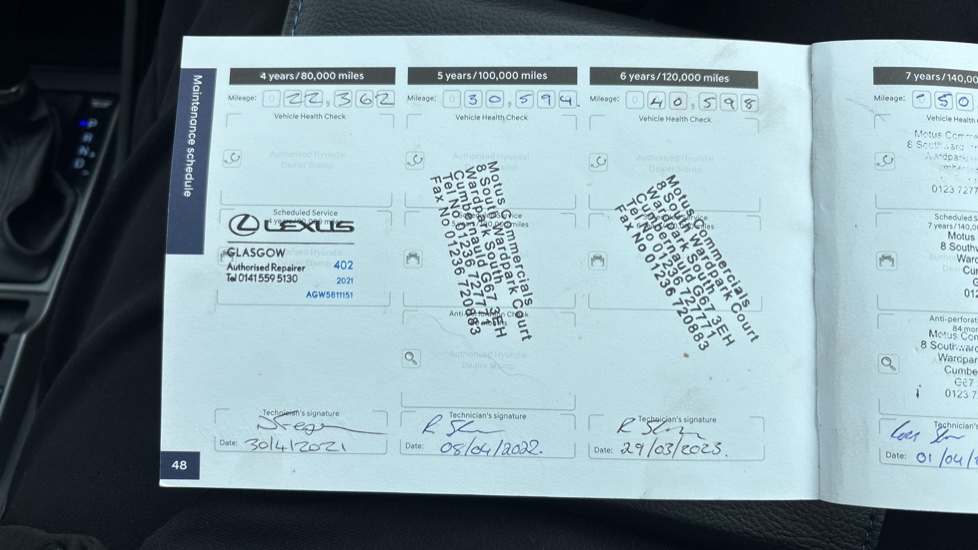 Maintenance schedule
4 years/80,000 miles
Mileage: 0 22,362
Vehicle Health Check
Authorised Hyundai
Dealer Stamp
Scheduled Service
LEXUS
GLASGOW
Authorised Repairer 402
Tel 0141 559 5130 2021
AGW5811151
Technician's signature
Date: 30/4/2021
48
5 years/100,000 miles
Mileage: 0 30,594.
Vehicle Health Check
Authorised Hyundai
Motus Commercials
8 South Wardpark Court
Wardpark South
Cumbernauld G67 3EH
Tel No 01236 727771
Fax No 01236 720883
Authorised Hyundai
Dealer Stamp
Technician's signature
Date: 08/04/2022.
6 years/120,000 miles
Mileage: 0 40,598
Vehicle Health Check
Authorised Hyundai
Motus Commercials
8 South Wardpark Court
Wardpark South
Cumbernauld G67 3EH
Tel No 01236 727771
Fax No 01236 720883
Technician's signature
Date: 29/03/2023.
7 years/140,00
Mileage: 50
Vehicle Health
Motus Comme
0123 7277
Scheduled S
7 years/140,0
Motus
8 South
Ward
Cu
012
Anti-perforat
84 mor
Motus Con
8 Southwar
Wardpar
Cumbe
G67
0123 7
Technician's
Date: 01/04/